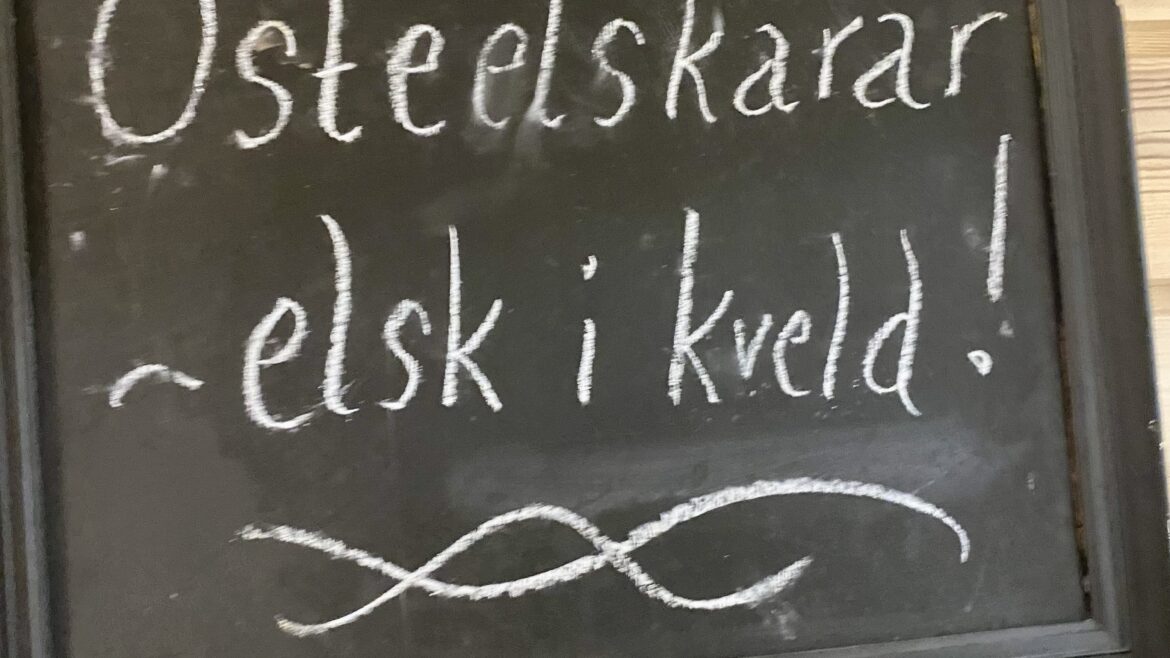 Osteelskarar
~ elsk i kveld!